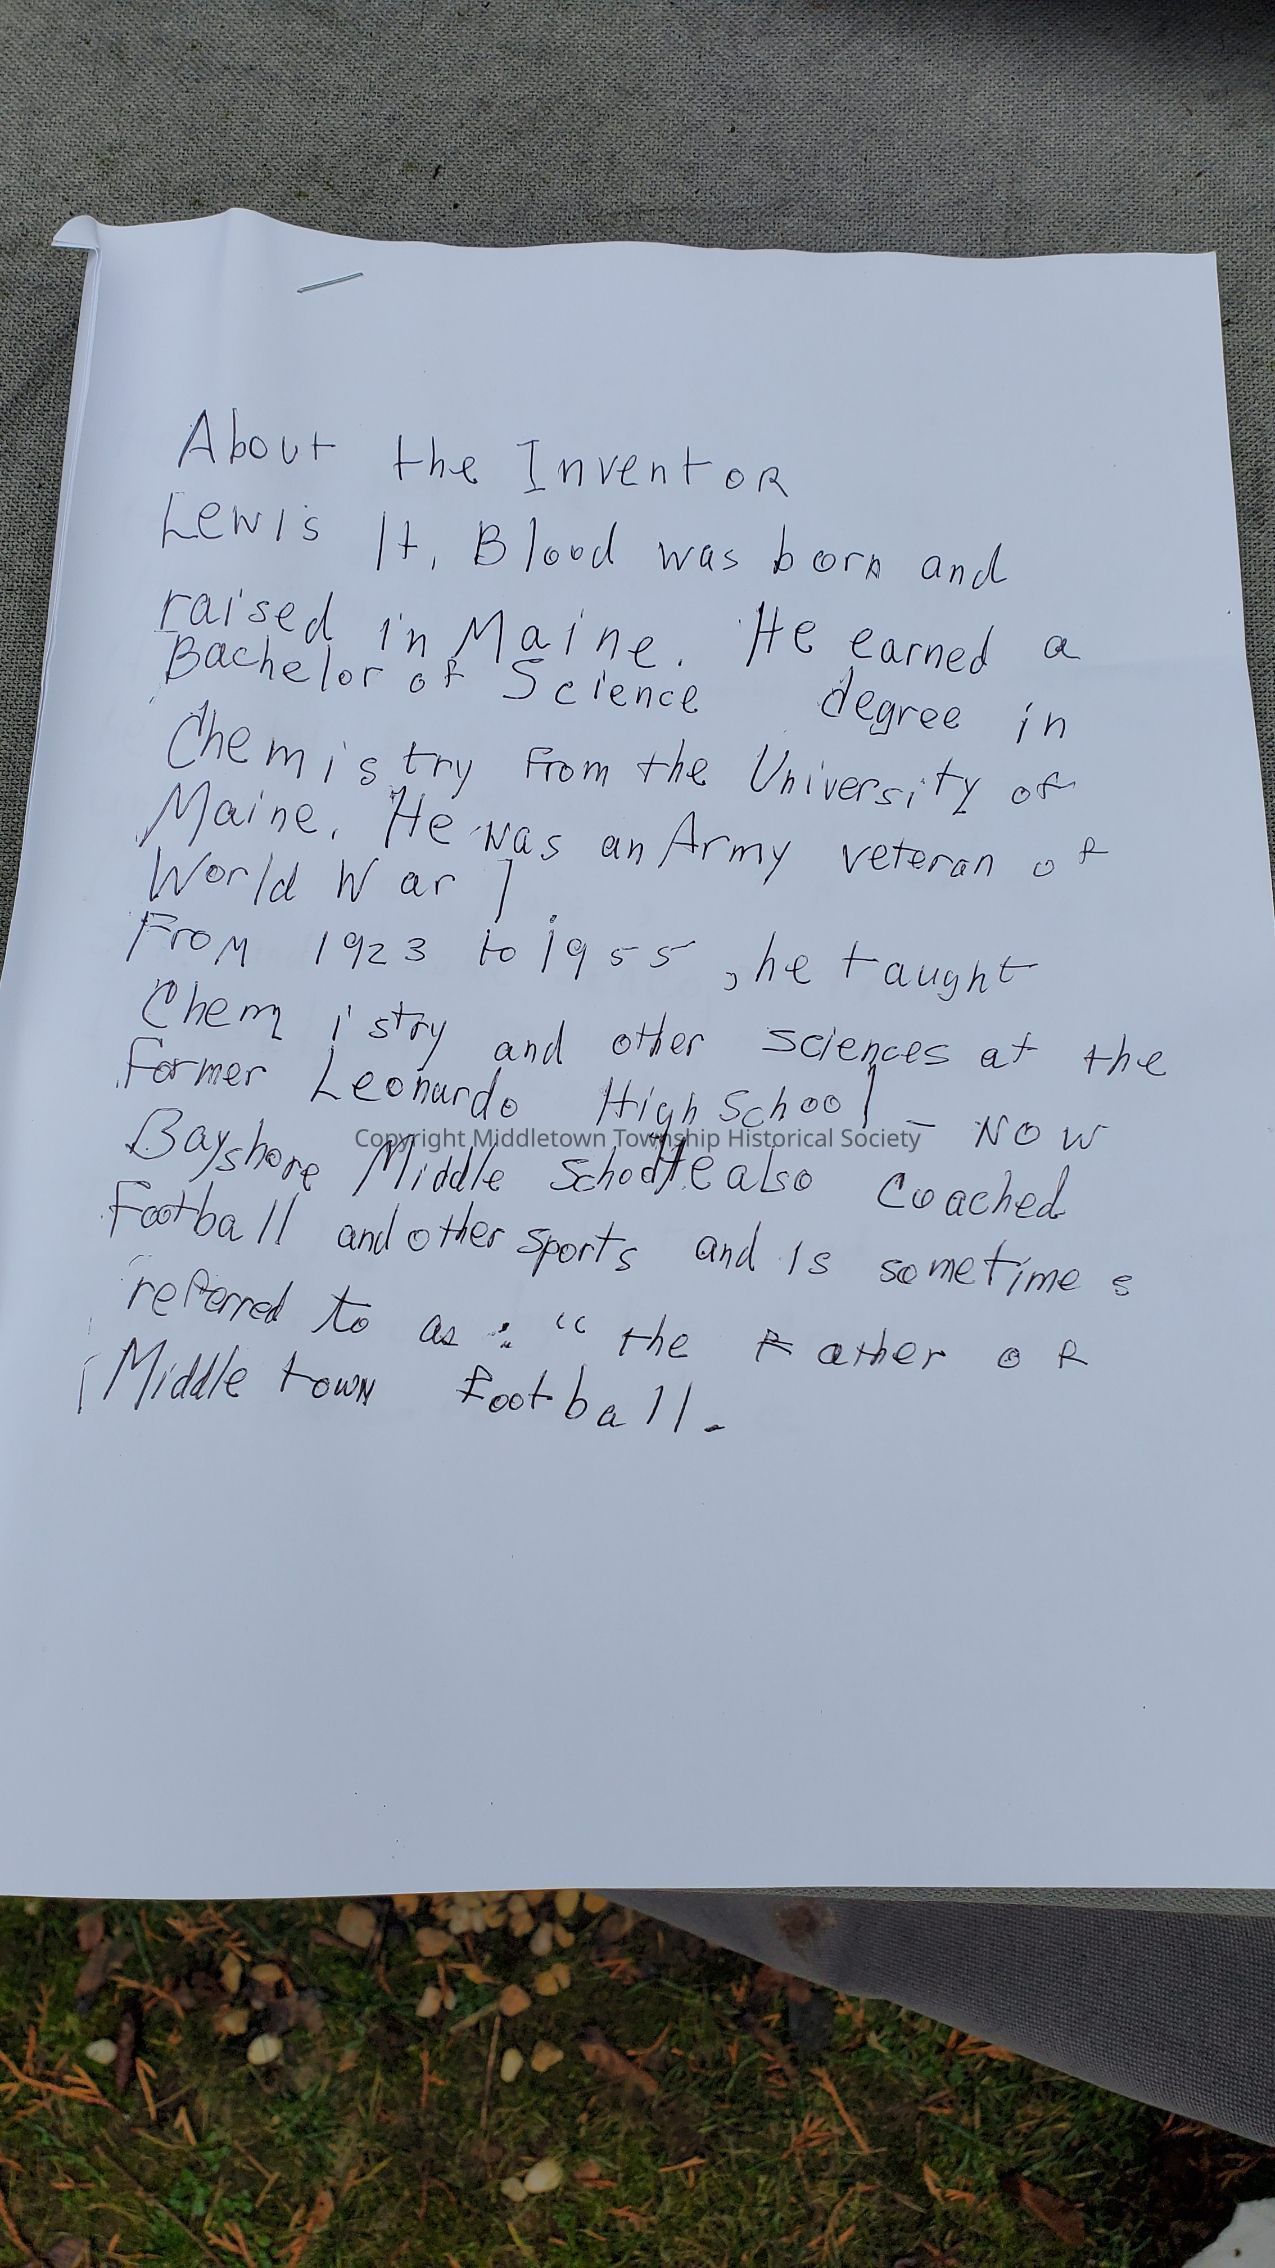 About the Inventor
Lewis H. Blood was born and
raised in Maine. He earned a
Bachelor of Science degree in
Chemistry from the University of
Maine. He was an Army veteran of
World War I
From 1923 to 1955, he taught
Chemistry and other sciences at the
Former Leonardo High School - Now
Bayshore Middle School He also coached
Copyright Middletown Township Historical Society
Football and other sports and is sometimes
referred to as: "the Father of
Middletown football.